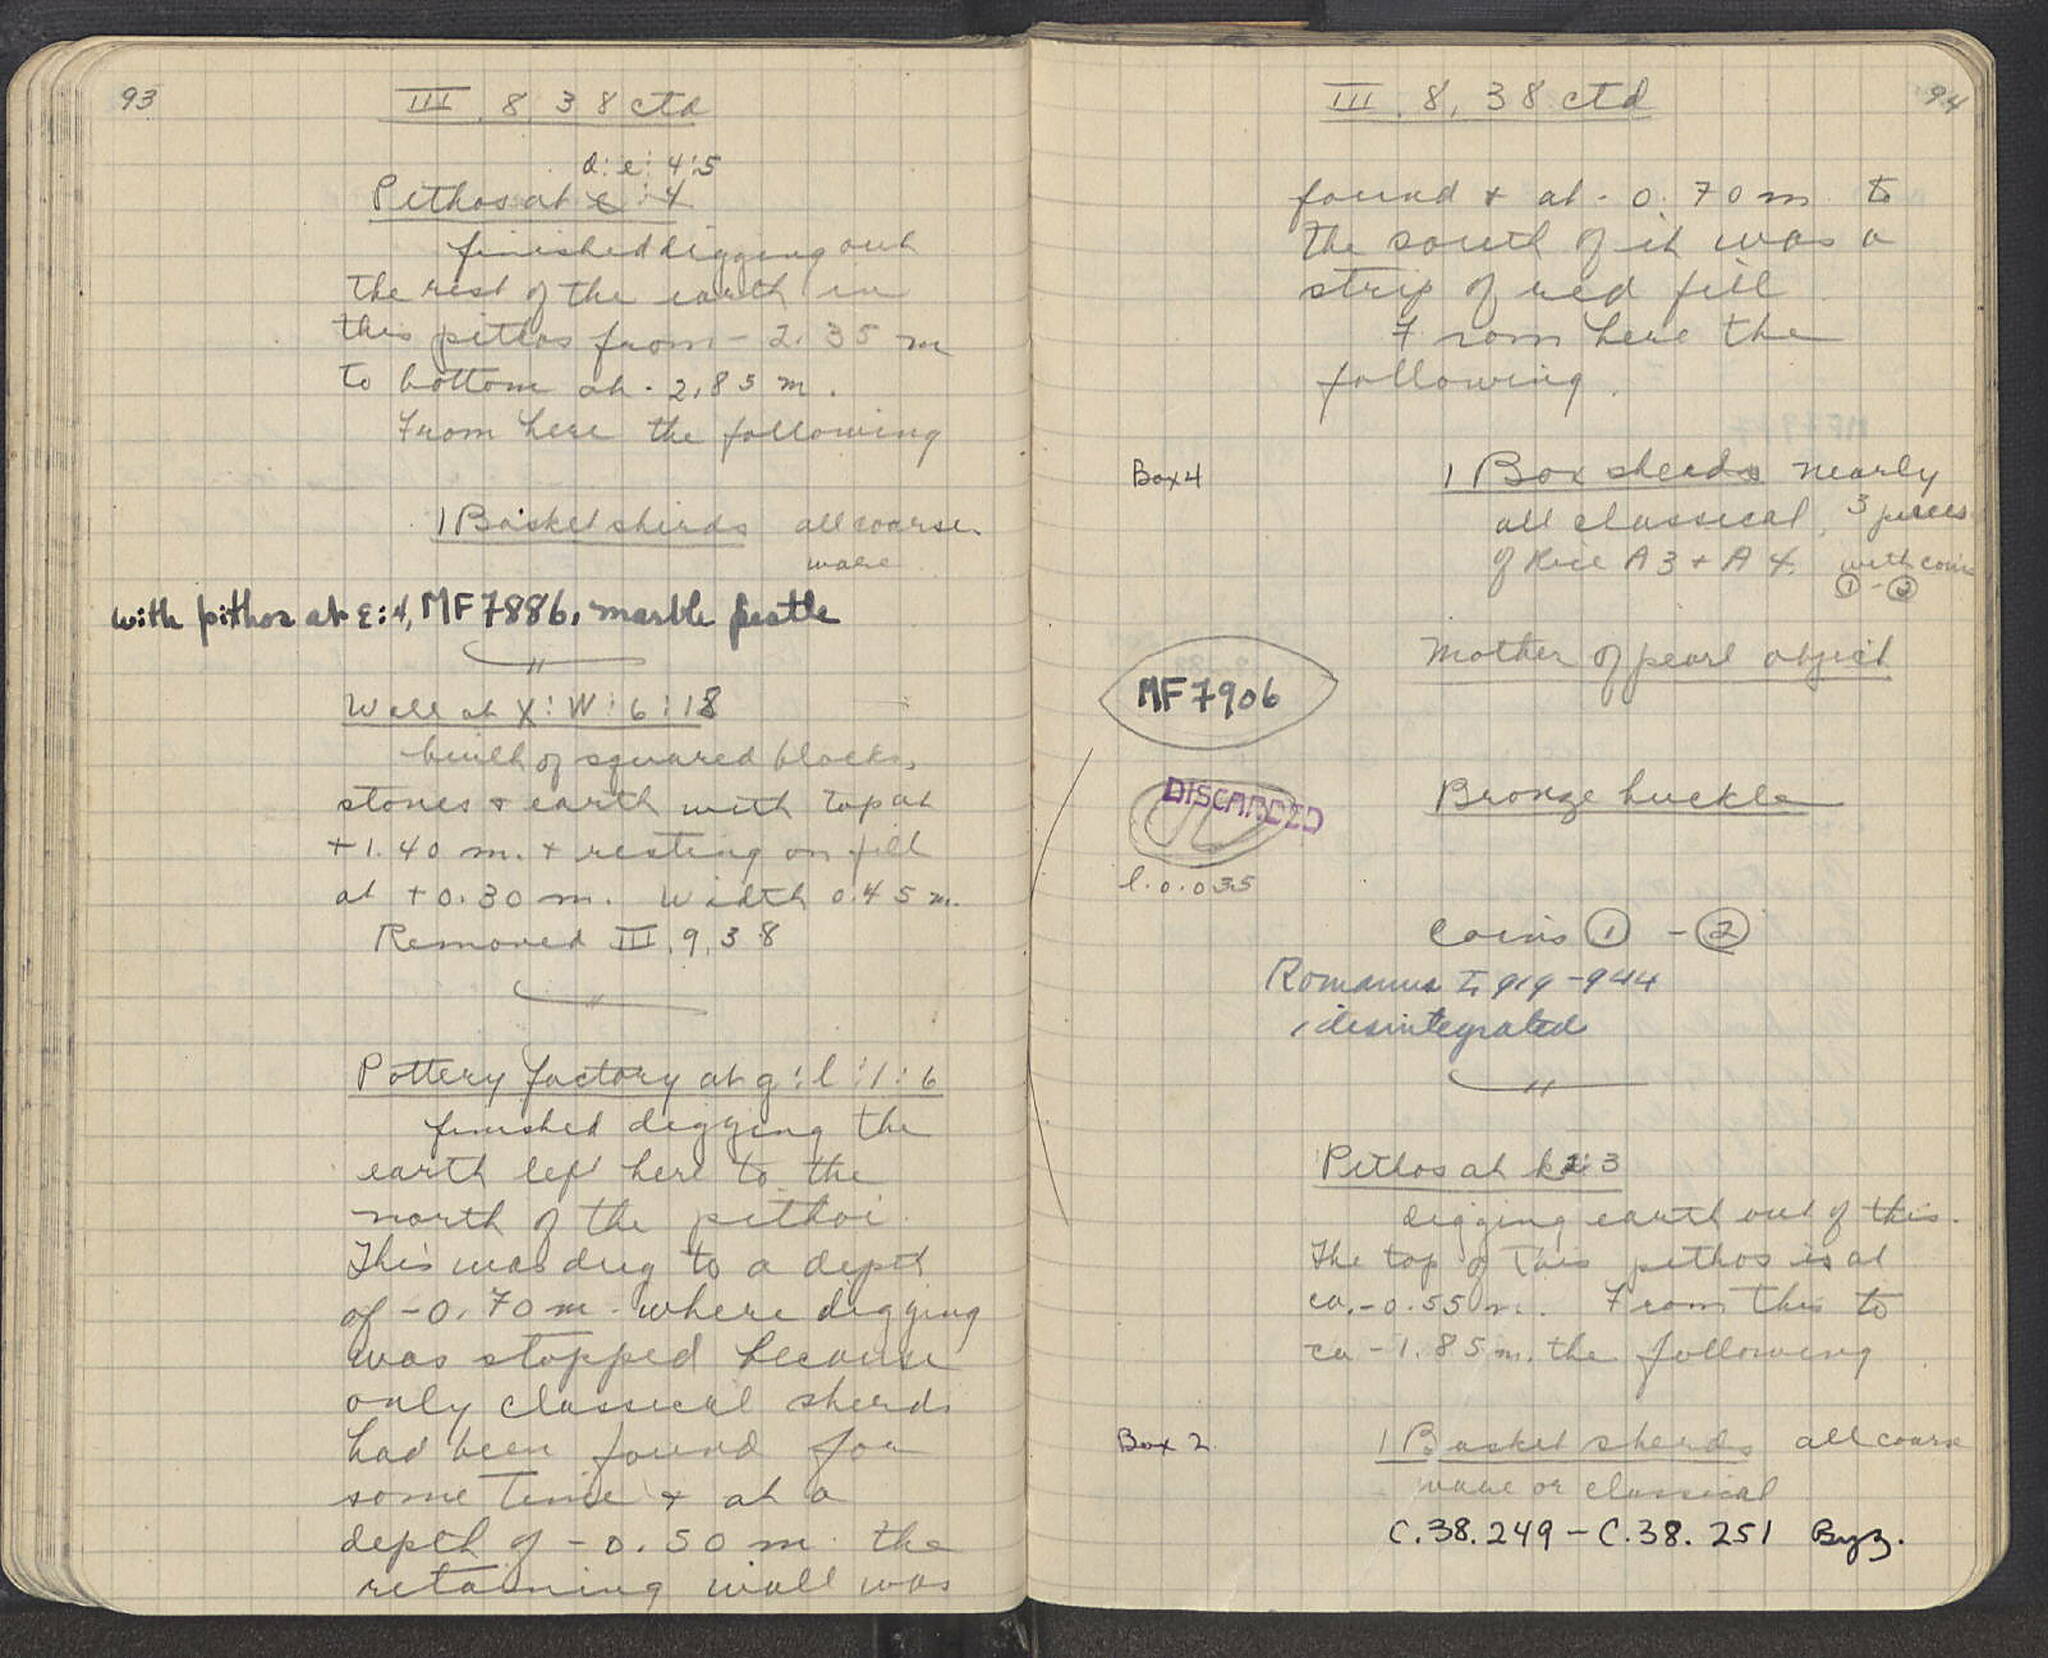 93
III 8 38 ctd
d: e: 4:5
Pithos at e:4
finished digging out
the rest of the earth in
this pithos from - 2.35 m
to bottom at - 2.85 m.
From here the following
1 Basket sherds all coarse
ware
with pithos at ε:4, MF 7886, marble pestle
Wall at X:W:6:18
built of squared blocks,
stones + earth with top at
+1.40 m. + resting on fill
at +0.30 m. Width 0.45 m.
Removed III, 9, 38
Pottery factory at g:l:1:6
finished digging the
earth left here to the
north of the pithoi
This was dug to a depth
of -0.70 m. where digging
was stopped because
only classical sherds
had been found for
some time + at a
depth of -0.50 m. the
retaining wall was
94
III. 8, 38 ctd
found + at -0.70 m to
the south of it was a
strip of red fill
From here the
following.
Box 4
1 Box sherds nearly
all classical, 3 pieces
of A 3 + A 4. with coins
① - ②
Mother of pearl object
MF 7906
Bronze buckle
DISCARDED
l. 0.035
Coins ① - ②
Romanus I 919-944
disintegrated
Pithos at k: 3
digging earth out of this.
The top of this pithos is at
ca. -0.55 m. From this to
ca -1.85 m. the following
Box 2
1 Basket sherds all coarse
ware or classical
C.38.249 - C.38.251 Byz.